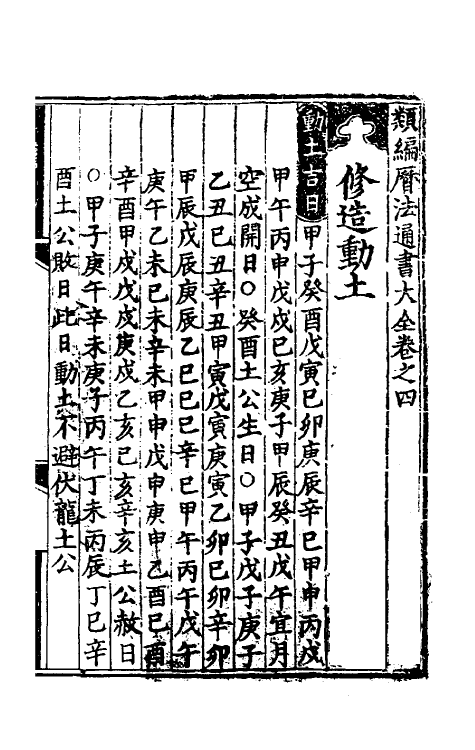 類編曆法通書大全卷之四
修造動土
動土吉日甲子癸酉戊寅己卯庚辰辛巳甲申丙戌
甲午丙申戊戌己亥庚子甲辰癸丑戊午宜月
空成開日○癸酉土公生日○甲子戊子庚子
乙丑己丑辛丑甲寅戊寅庚寅乙卯己卯辛卯
甲辰戊辰庚辰乙巳己巳辛巳甲午丙午戊午
庚午乙未己未辛未甲申戊申庚申乙酉己酉
辛酉甲戌戊戌庚戌乙亥己亥辛亥土公赦日
○甲子庚午辛未庚子丙午丁未丙辰丁巳辛
酉土公敗日此日動土不避伏龍土公